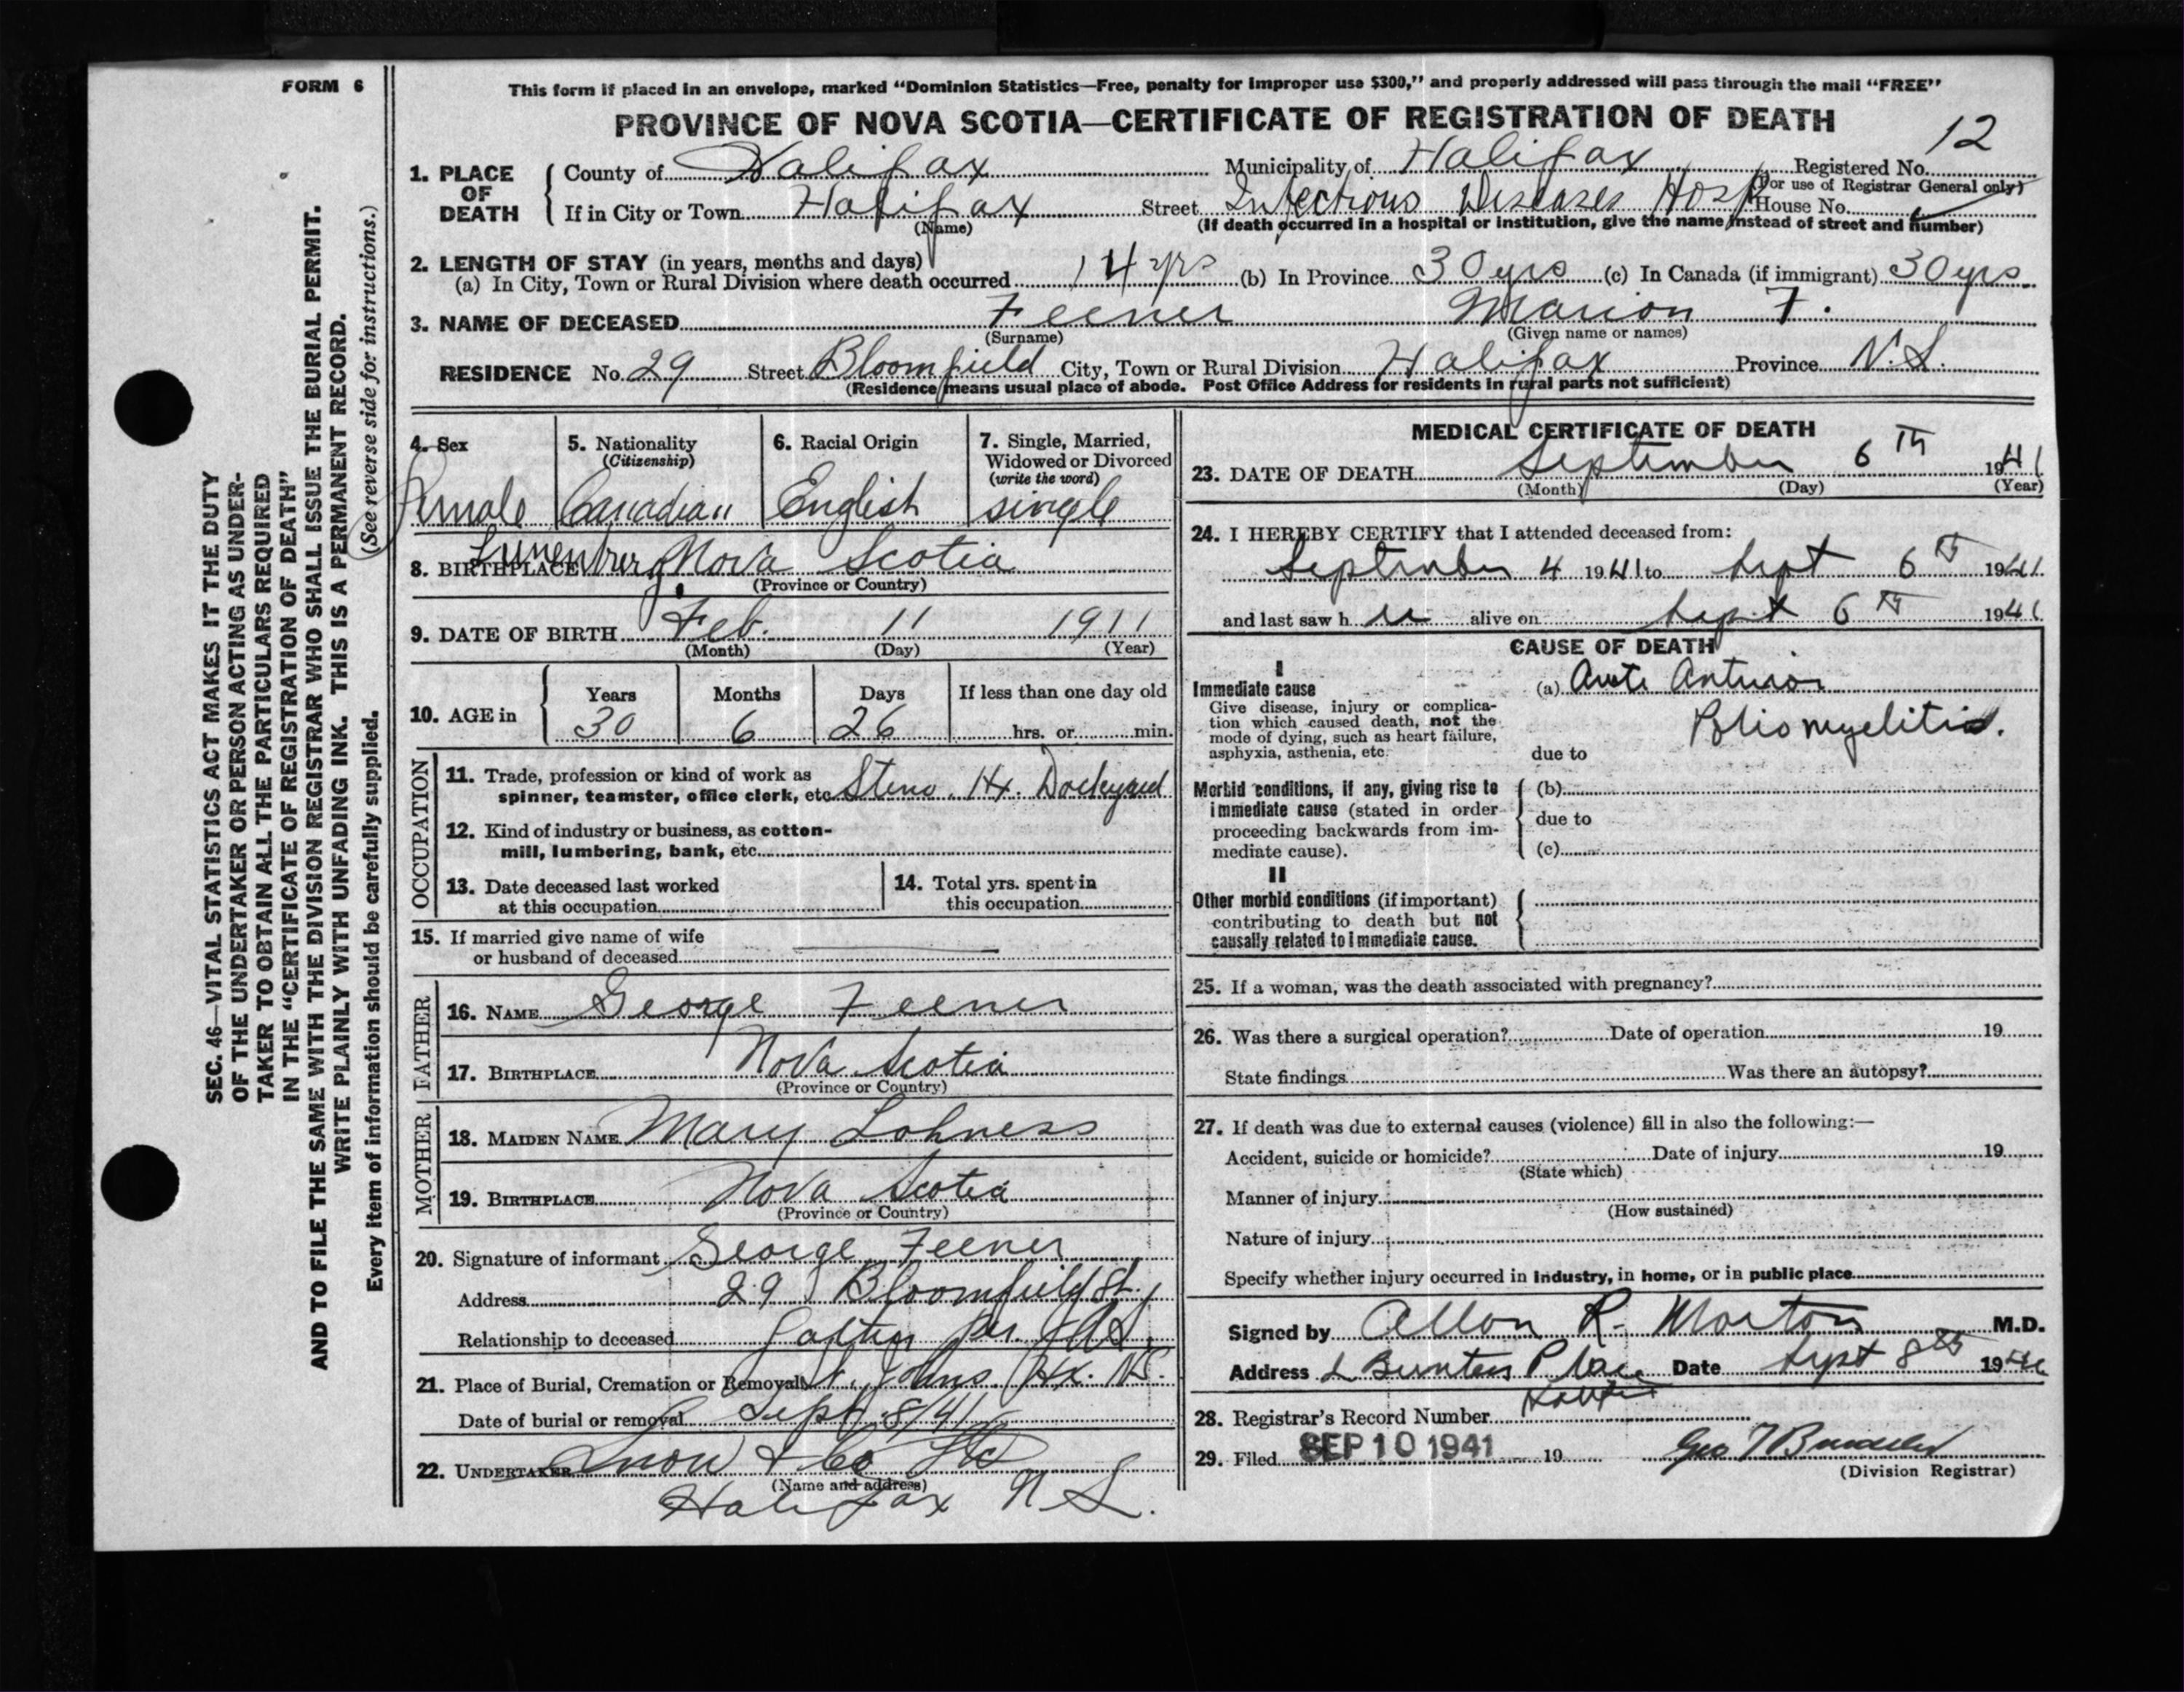 FORM 6
This form if placed in an envelope, marked "Dominion Statistics—Free, penalty for improper use $300," and properly addressed will pass through the mail "FREE"
PROVINCE OF NOVA SCOTIA—CERTIFICATE OF REGISTRATION OF DEATH
12
1. PLACE OF DEATH
County of Halifax Municipality of Halifax Registered No.
(For use of Registrar General only)
If in City or Town Halifax Street Infectious Diseases Hosp House No.
(Name) (If death occurred in a hospital or institution, give the name instead of street and number)
2. LENGTH OF STAY (in years, months and days)
(a) In City, Town or Rural Division where death occurred 14 yrs (b) In Province 30 yrs (c) In Canada (if immigrant) 30 yrs
3. NAME OF DECEASED Feener Marion F.
(Surname) (Given name or names)
RESIDENCE No. 29 Street Bloomfield City, Town or Rural Division Halifax Province N.S.
(Residence means usual place of abode. Post Office Address for residents in rural parts not sufficient)
4. Sex
Female
5. Nationality
(Citizenship)
Canadian
6. Racial Origin
English
7. Single, Married,
Widowed or Divorced
(write the word)
single
8. BIRTHPLACE Lunenburg Nova Scotia
(Province or Country)
9. DATE OF BIRTH Feb. 11 1911
(Month) (Day) (Year)
Years Months Days If less than one day old
10. AGE in 30 6 26 hrs. or min.
OCCUPATION
11. Trade, profession or kind of work as
spinner, teamster, office clerk, etc. Steno. Hx. Dockyard
12. Kind of industry or business, as cotton-
mill, lumbering, bank, etc.
13. Date deceased last worked
at this occupation
14. Total yrs. spent in
this occupation
15. If married give name of wife
or husband of deceased
FATHER
16. NAME George Feener
17. BIRTHPLACE Nova Scotia
(Province or Country)
MOTHER
18. MAIDEN NAME Mary Lohness
19. BIRTHPLACE Nova Scotia
(Province or Country)
20. Signature of informant George Feener
Address 29 Bloomfield St.
Relationship to deceased Father per
21. Place of Burial, Cremation or Removal St. Johns Hx. N.S.
Date of burial or removal Sept 8/41
22. UNDERTAKER Snow & Co Ltd
(Name and address)
Halifax N S.
MEDICAL CERTIFICATE OF DEATH
23. DATE OF DEATH September 6th 1941
(Month) (Day) (Year)
24. I HEREBY CERTIFY that I attended deceased from:
September 4 1941 to Sept 6th 1941
and last saw her alive on Sept 6th 1941
CAUSE OF DEATH
I
Immediate cause
Give disease, injury or complica-
tion which caused death, not the
mode of dying, such as heart failure,
asphyxia, asthenia, etc.
(a) Acute Anterior
Poliomyelitis.
due to
Morbid conditions, if any, giving rise to
immediate cause (stated in order
proceeding backwards from im-
mediate cause).
(b)
due to
(c)
II
Other morbid conditions (if important)
contributing to death but not
causally related to immediate cause.
25. If a woman, was the death associated with pregnancy?
26. Was there a surgical operation? Date of operation 19
State findings Was there an autopsy?
27. If death was due to external causes (violence) fill in also the following:—
Accident, suicide or homicide? Date of injury 19
(State which)
Manner of injury
(How sustained)
Nature of injury
Specify whether injury occurred in industry, in home, or in public place
Signed by Allan R. Morton M.D.
Address Place Date Sept 8th 1941
28. Registrar's Record Number
29. Filed SEP 10 1941 19
(Division Registrar)
SEC. 46—VITAL STATISTICS ACT MAKES IT THE DUTY
OF THE UNDERTAKER OR PERSON ACTING AS UNDER-
TAKER TO OBTAIN ALL THE PARTICULARS REQUIRED
IN THE "CERTIFICATE OF REGISTRATION OF DEATH"
AND TO FILE THE SAME WITH THE DIVISION REGISTRAR WHO SHALL ISSUE THE BURIAL PERMIT.
WRITE PLAINLY WITH UNFADING INK. THIS IS A PERMANENT RECORD.
Every item of information should be carefully supplied. (See reverse side for instructions.)